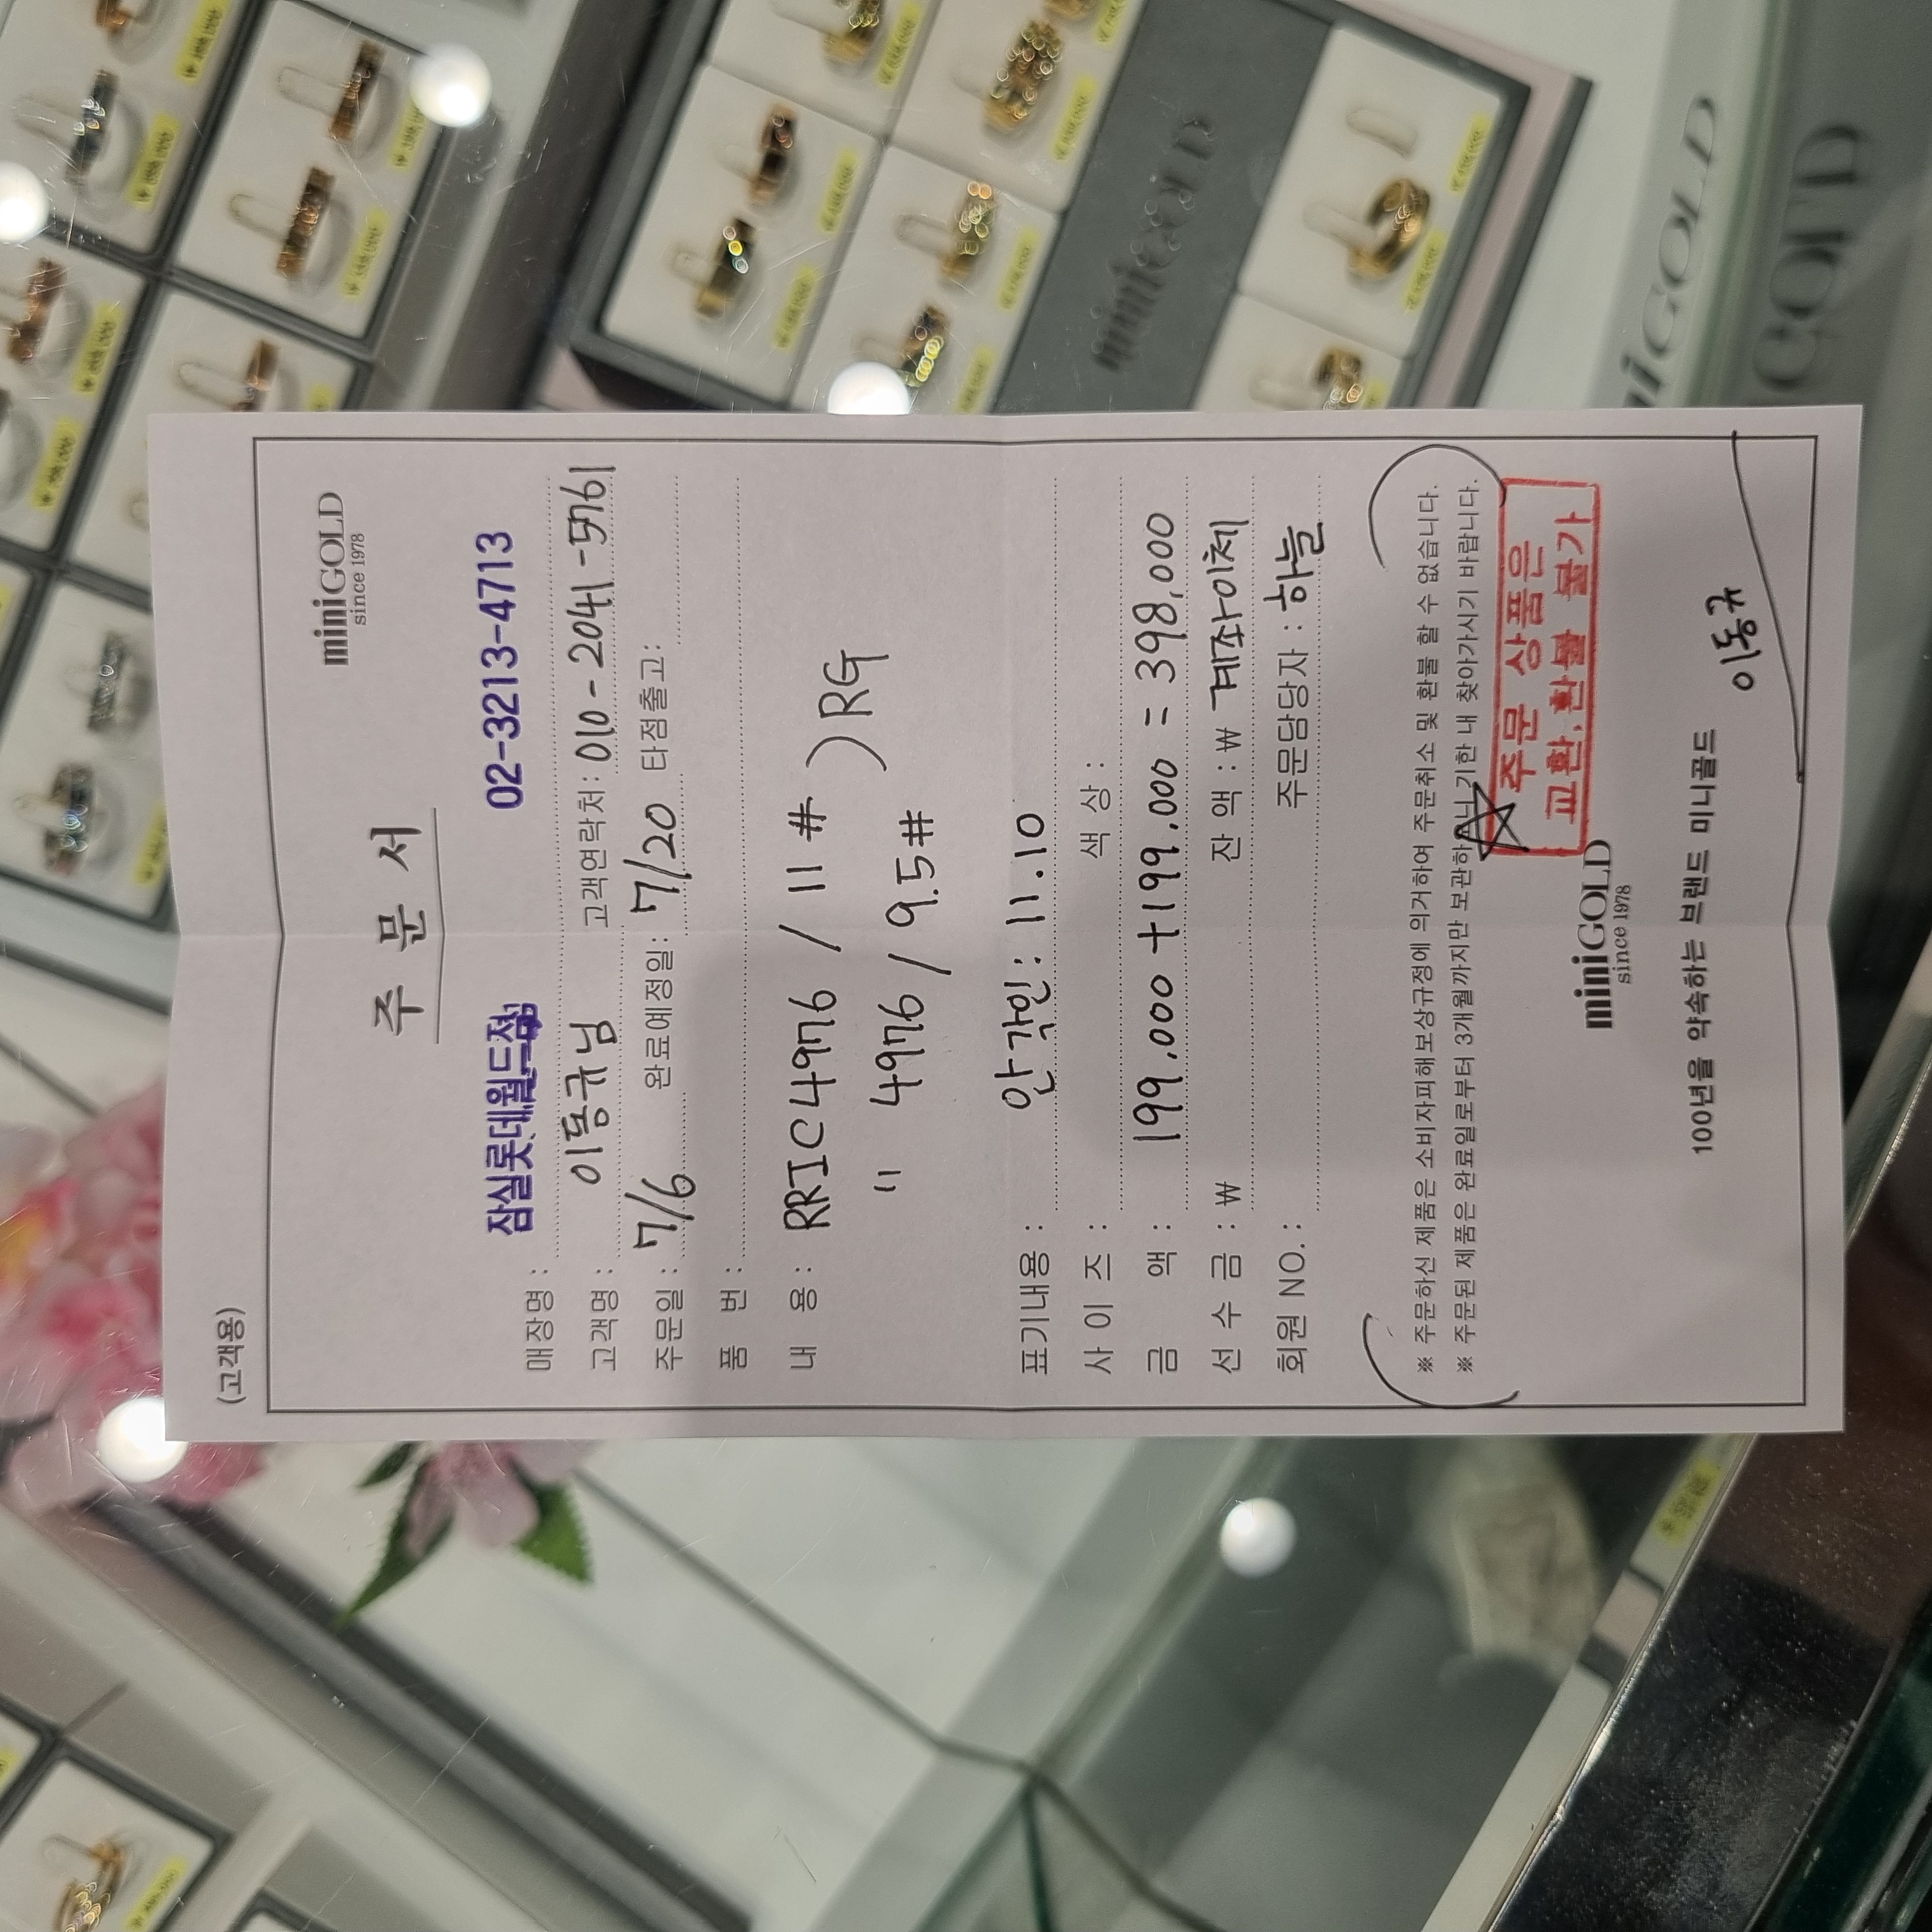 (고객용)
miniGOLD
since 1978
주 문 서
매장명 : 잠실롯데월드점 02-3213-4713
고객명 : 이동규님 고객연락처: 010-2041-5761
주문일 : 7/6 완료예정일: 7/20 타점출고:
품 번 :
내 용 : RRIC4976 / 11 # ) RG
" 4976 / 9.5#
표기내용 : 안 각인: 11.10
사 이 즈 : 색 상 :
금 액 : 199,000 +199,000 = 398,000
선 수 금 : ₩ 잔 액 : ₩ 계좌이체
회원 NO. : 주문담당자 : 하늘
※ 주문하신 제품은 소비자피해보상규정에 의거하여 주문취소 및 환불 할 수 없습니다.
※ 주문된 제품은 완료일로부터 3개월까지만 보관하오니 기한 내 찾아가시기 바랍니다.
주문 상품은
교환,환불 불가
miniGOLD
since 1978
100년을 약속하는 브랜드 미니골드
이동규
miniGOLD
miniGOLD
GOLD